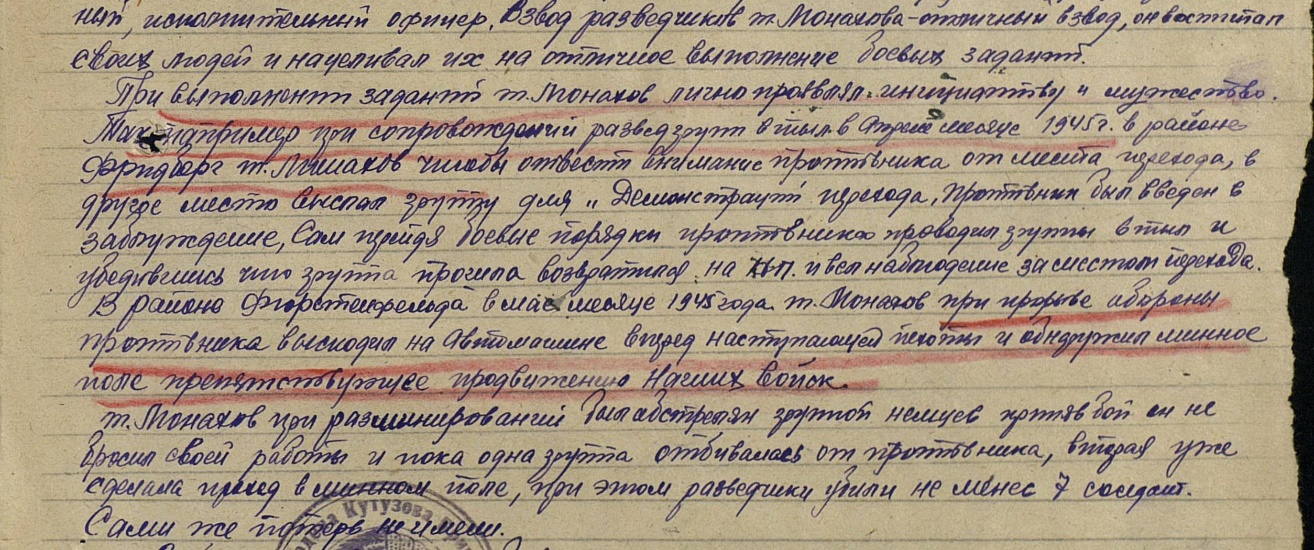 ный, исполнительный офицер. Взвод разведчиков т. Монахова-отличный взвод, он воспитал
своих людей и нацеливал их на отличное выполнение боевых заданий.
При выполнении заданий т. Монахов лично проявлял инициативу и мужество.
Так например при сопровождений разведгрупп в тыл в Апреле месяце 1945г. в районе
Фридберг т. Монахов чтобы отвести внимание противника от места перехода, в
другое место выслал группу для „Демонстраций перехода, Противник был введен в
заблуждение, Сам перейдя боевые порядки противника проводил группы в тыл и
убедившись что группа прошла возвратился на НП. и вел наблюдение за местом перехода.
В районе Фюрстенфельда в мае месяце 1945 года т. Монахов при прорыве обороны
противника выскодил на Автомашине вперед наступающей пехоты и обнаружил минное
поле препятствующее продвижению наших войск.
т. Монахов при разминирований был обстрелян группой немцев приняв бой он не
бросил своей работы и пока одна группа отбивалась от противника, вторая уже
сделала проход в минном поле, при этом разведчики убили не менее 7 солдат.
Сами же потерь не имели.
Кутузова